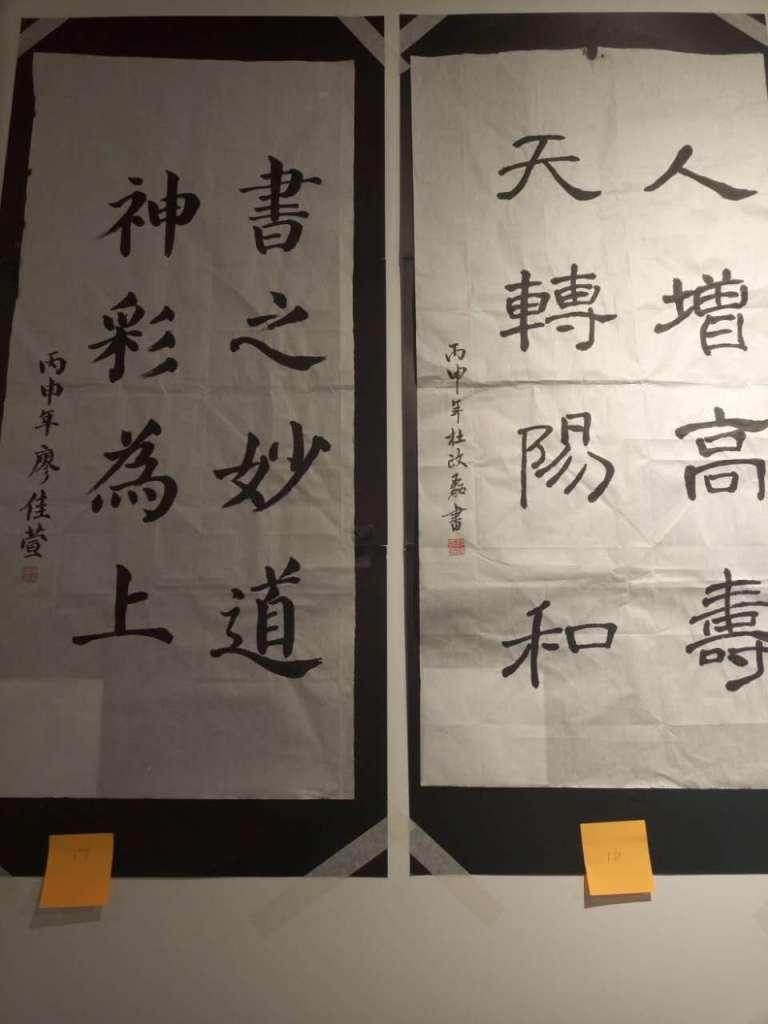 人增高壽
天轉陽和
丙申年杜改書
書之妙道
神彩為上
丙申年廖佳萱
16
17